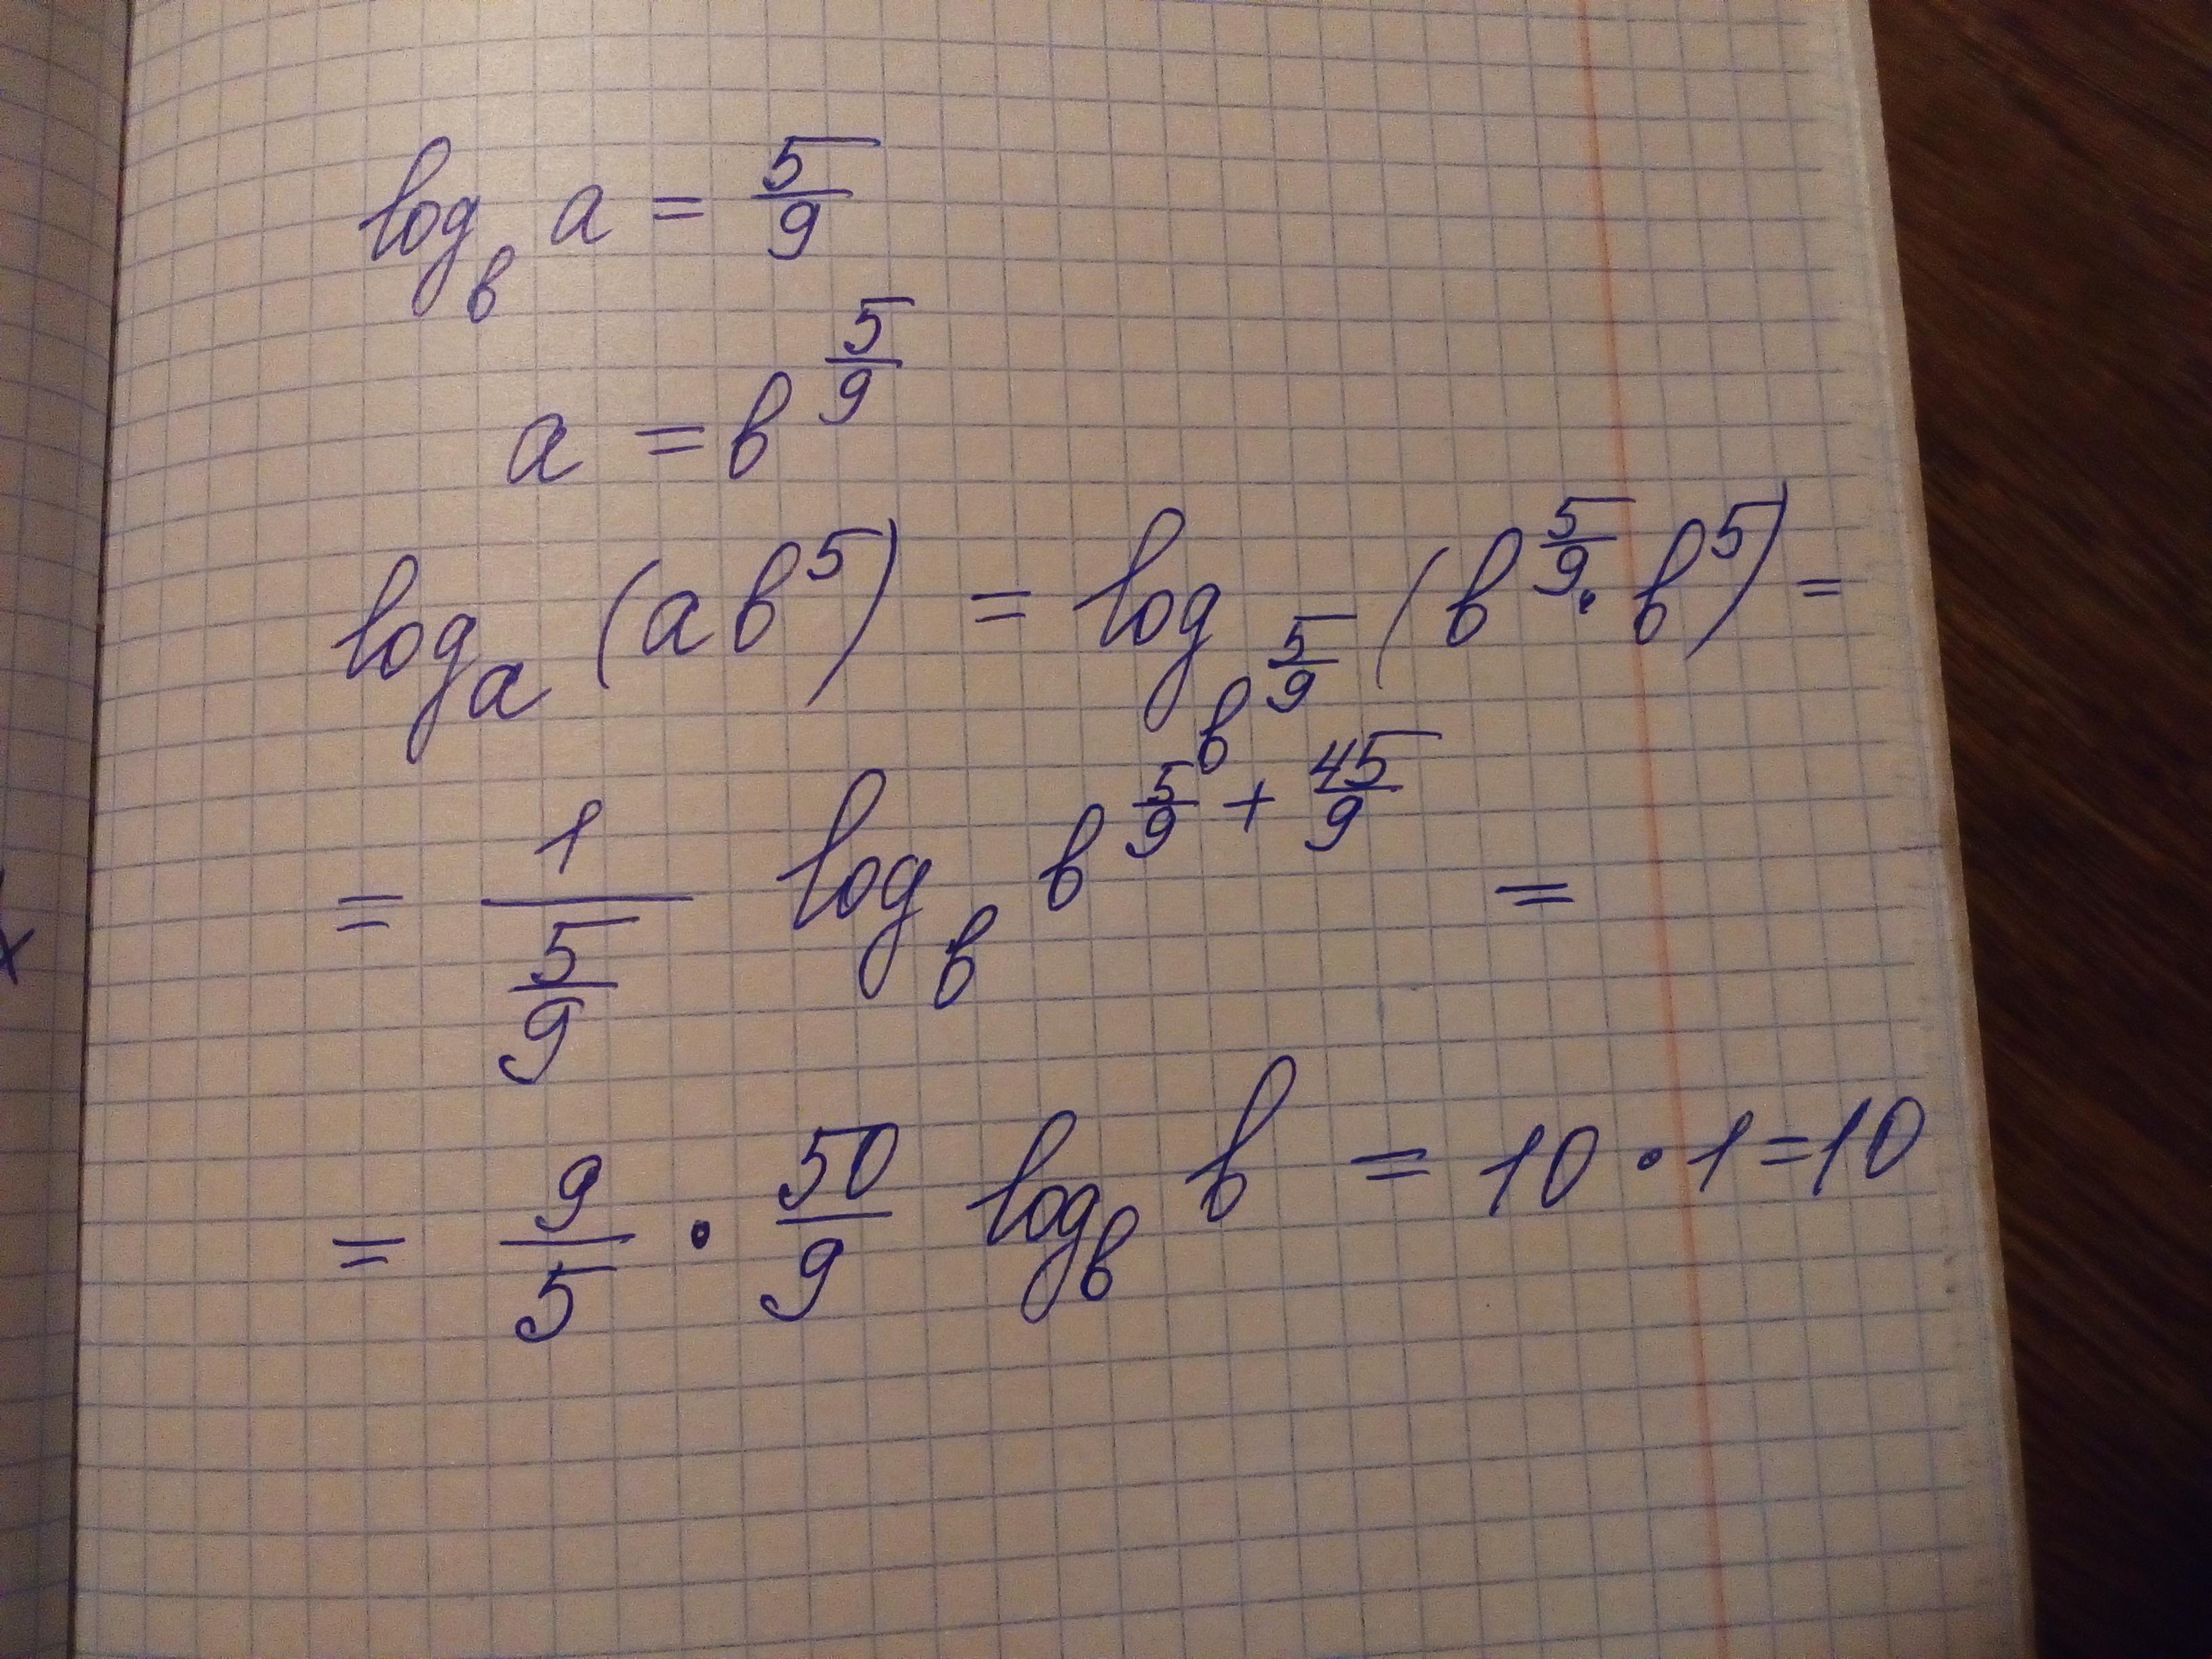 log_b a = 5/9
a = b^(5/9)
log_a (ab^5) = log_(b^(5/9)) (b^(5/9) · b^5) =
= 1/(5/9) log_b b^(5/9 + 45/9) =
= 9/5 · 50/9 log_b b = 10 · 1 = 10